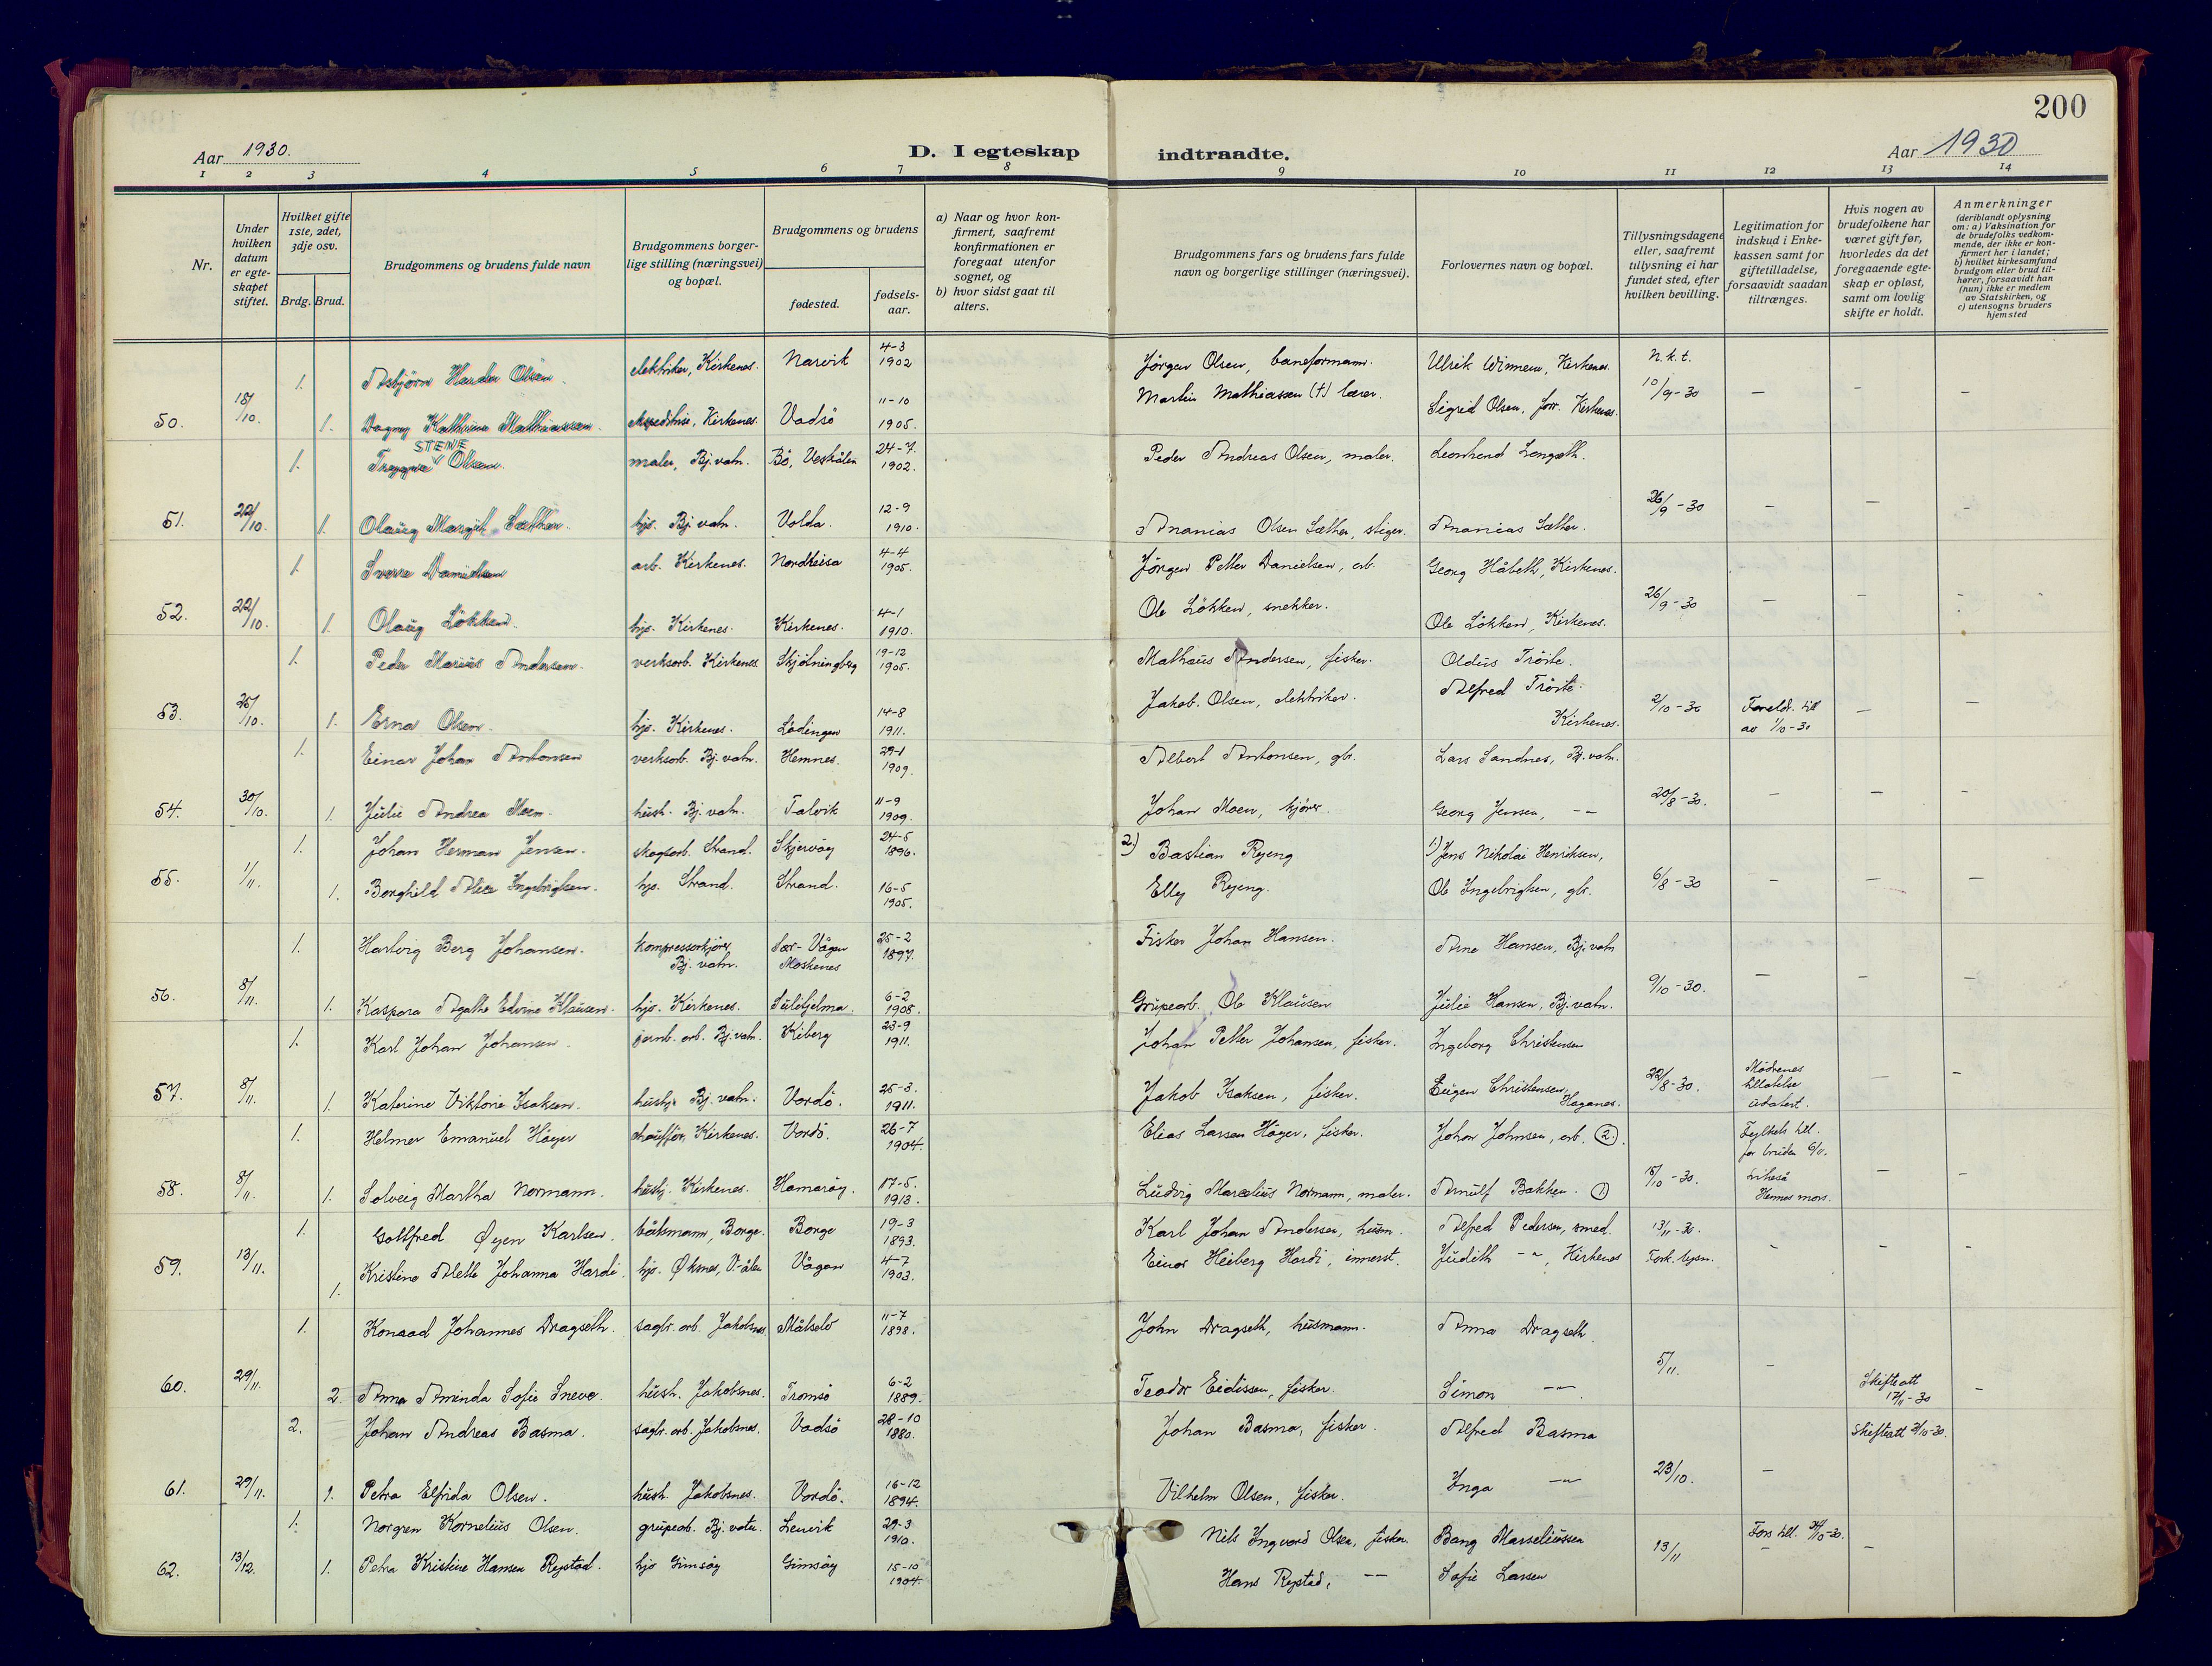 200
Aar 1930.
D. I egteskap indtraadte.
Aar 1930
1 2 3 4 5 6 7 8 9 10 11 12 13 14
Nr.
Under hvilken datum er egte-skapet stiftet.
Hvilket gifte 1ste, 2det, 3dje osv.
Brdg. Brud.
Brudgommens og brudens fulde navn
Brudgommens borger-lige stilling (næringsvei) og bopæl.
Brudgommens og brudens
fødested.
fødsels-aar.
a) Naar og hvor kon-firmert, saafremt konfirmationen er foregaat utenfor sognet, og
b) hvor sidst gaat til alters.
Brudgommens fars og brudens fars fulde navn og borgerlige stillinger (næringsvei).
Forlovernes navn og bopæl.
Tillysningsdagene eller, saafremt tillysning ei har fundet sted, efter hvilken bevilling.
Legitimation for indskud i Enke-kassen samt for giftetilladelse, forsaavidt saadan tiltrænges.
Hvis nogen av brudefolkene har været gift før, hvorledes da det foregaaende egte-skap er opløst, samt om lovlig skifte er holdt.
Anmerkninger
(deriblandt oplysning om: a) Vaksination for de brudefolks vedkom-mende, der ikke er kon-firmert her i landet; b) hvilket kirkesamfund brudgom eller brud til-hører, forsaavidt han (hun) ikke er medlem av Statskirken, og c) utensogns bruders hjemsted
1. Asbjörn Harder Olsen. elektriker, Kirkenes. Narvik 4-3 1902 Jörgen Olsen, baneformann. Ulrik Winnem, Kirkenes. N.k.t.
50. 18/10. 1. Dagny Kathrine Mathiassen. ekspeditrise, Kirkenes. Vadsö 11-10 1905. Martin Mathiassen (†) lærer. Sigrid Olsen, forr. Kirkenes. 10/9-30 — — —
STENE
1. Tryggve Olsen. maler, Bj.vatn. Bö, Vesterålen 24-7. 1902. Peder Andreas Olsen, maler. Leonhard Longseth.
51. 22/10. 1. Olaug Margit Sæther. hjs. Bj.vatn. Volda. 12-9 1910. Ananias Olsen Sæther, stiger. Ananias Sæther. 26/9-30 — — —
1. Sverre Danielsen arb. Kirkenes. Nordreisa 4-4 1905. Jörgen Petter Danielsen, arb. Georg Håbeth, Kirkenes.
52. 22/10. 1. Olaug Lökken. hjs. Kirkenes. Kirkenes. 4-1 1910. Ole Lökken, snekker. Ole Lökken, Kirkenes. 26/9-30 — — —
1. Peder Marius Andersen. verksarb. Kirkenes Skjötningberg 19-12 1905. Mathæus Andersen, fisker. Oldus Tröite.
53. 25/10. 1. Erna Olsen. hjs. Kirkenes. Lödingen 14-8 1911. Jakob Olsen, elektriker. Alfred Tröite. Kirkenes. 2/10-30 Foreldr. till av 1/10-30 — —
1. Einar Johan Antonsen verksarb. Bj.vatn. Hemnes. 29-1 1909. Albert Antonsen, gbr. Lars Sandnes, Bj.vatn.
54. 30/10. 1. Julie Andrea Moen. hush. Bj.vatn. Talvik 11-9 1909. Johan Moen, kjörer. Georg Jensen, -- 20/8-30. — — —
1. Johan Herman Jensen. skogsarb. Strand. Skjervöy 24-5 1896. 2) Bastian Ryeng 1) Jens Nikolai Henriksen,
55. 1/11. 1. Borghild Alice Ingebrigtsen. hjs. Strand. Strand. 16-5 1905. Elly Ryeng. Ole Ingebrigtsen, gbr. 6/8-30 — — —
1. Hartvig Berg Johansen. kompressorkjörer, Bj.vatn. Sør-Vågen Moskenes 25-2 1897. Fisker Johan Hansen. Arne Hansen, Bj.vatn
56. 8/11. 1. Kaspara Agathe Edvine Klausen. hjs. Kirkenes. Sulitjelma. 6-2 1908. Grubearb. Ole Klausen Julie Hansen, Bj.vatn. 9/10-30. — — —
1. Karl Johan Johansen. jernb. arb. Bj.vatn. Kiberg 23-9 1911. Johan Petter Johansen, fisker. Ingeborg Christensen
57. 8/11. 1. Katerine Viktorie Isaksen. hushj. Bj.vatn. Vardö. 25-3. 1911. Jakob Isaksen, fisker. Eugen Christensen, Haganes. 22/8-30. Mödrenes tillatelse udatert. — —
1. Helmer Emanuel Höyer chaufför, Kirkenes. Vardö. 26-7 1904. Elias Larsen Höyer, fisker. Johan Johnsen, arb. 2. Fylkets till. for bruden 6/11.
58. 8/11. 1. Solveig Martha Normann. hushj. Kirkenes. Hamaröy. 17-5. 1913. Ludvig Marcelius Normann, maler. Arnulf Bakken. 1 15/10-30. Likeså Hennes mors. — —
1. Gottfred Øyen Karlsen. båtsmann, Borge. Borge 19-3 1893. Karl Johan Andersen, husm. Alfred Pedersen, smed. 13/11-30.
59. 13/11. 1. Kristine Alette Johanna Hardi. hjs. Øksnes, V.ålen Vågan 4-7 1903. Einar Heiberg Hardi, innerst. Judith -"-, Kirkenes Fork. lysn. - - -
1. Konrad Johannes Dragseth. sagbr. arb. Jakobsnes. Målselv 11-7 1898. John Dragseth, husmann. Anna Dragseth.
60. 29/11. 2. Anna Aminda Sofie Sneve. hush. Jakobsnes. Tromsö 6-2 1889. Teodor Eidissen, fisker. Simon -"- 5/11. — Skifteatt 17/11-30 —
2. Johan Andreas Basma. sagbr. arb. Jakobsnes. Vadsö 28-10 1880. Johan Basma, fisker. Alfred Basma Skifteatt 2/10-30.
61. 29/11. 1. Petra Elfrida Olsen. hush. Jakobsnes. Vardö. 16-12 1894. Vilhelm Olsen, fisker. Inga -"- 23/10. —
1. Norgren Kornelius Olsen. grubearb. Bj.vatn. Lenvik 29-3 1910. Nils Ingvard Olsen, fisker. Bang Marseliussen Fors till.
62. 13/12. 1. Petra Kristine Hansen Rystad. hjs Gimsöy Gimsöy 15-10 1904. Hans Rystad, -- Sofie Larsen 13/11 — —